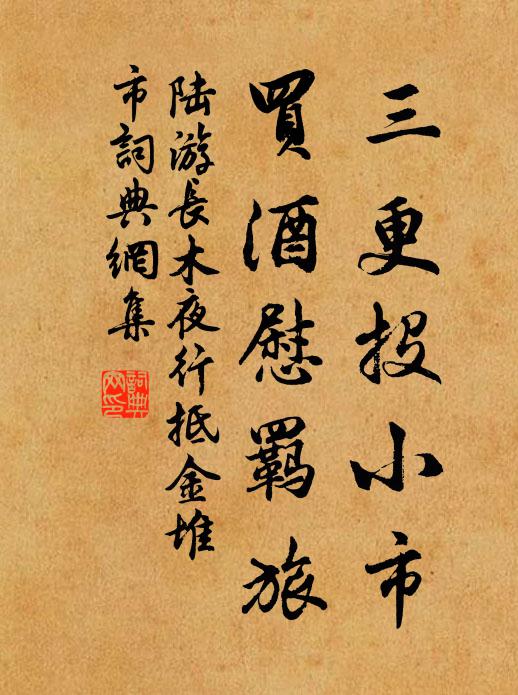 三更投小市
買酒慰羇旅
陆游長木夜行抵金堆
市詞典網集
詞典网印